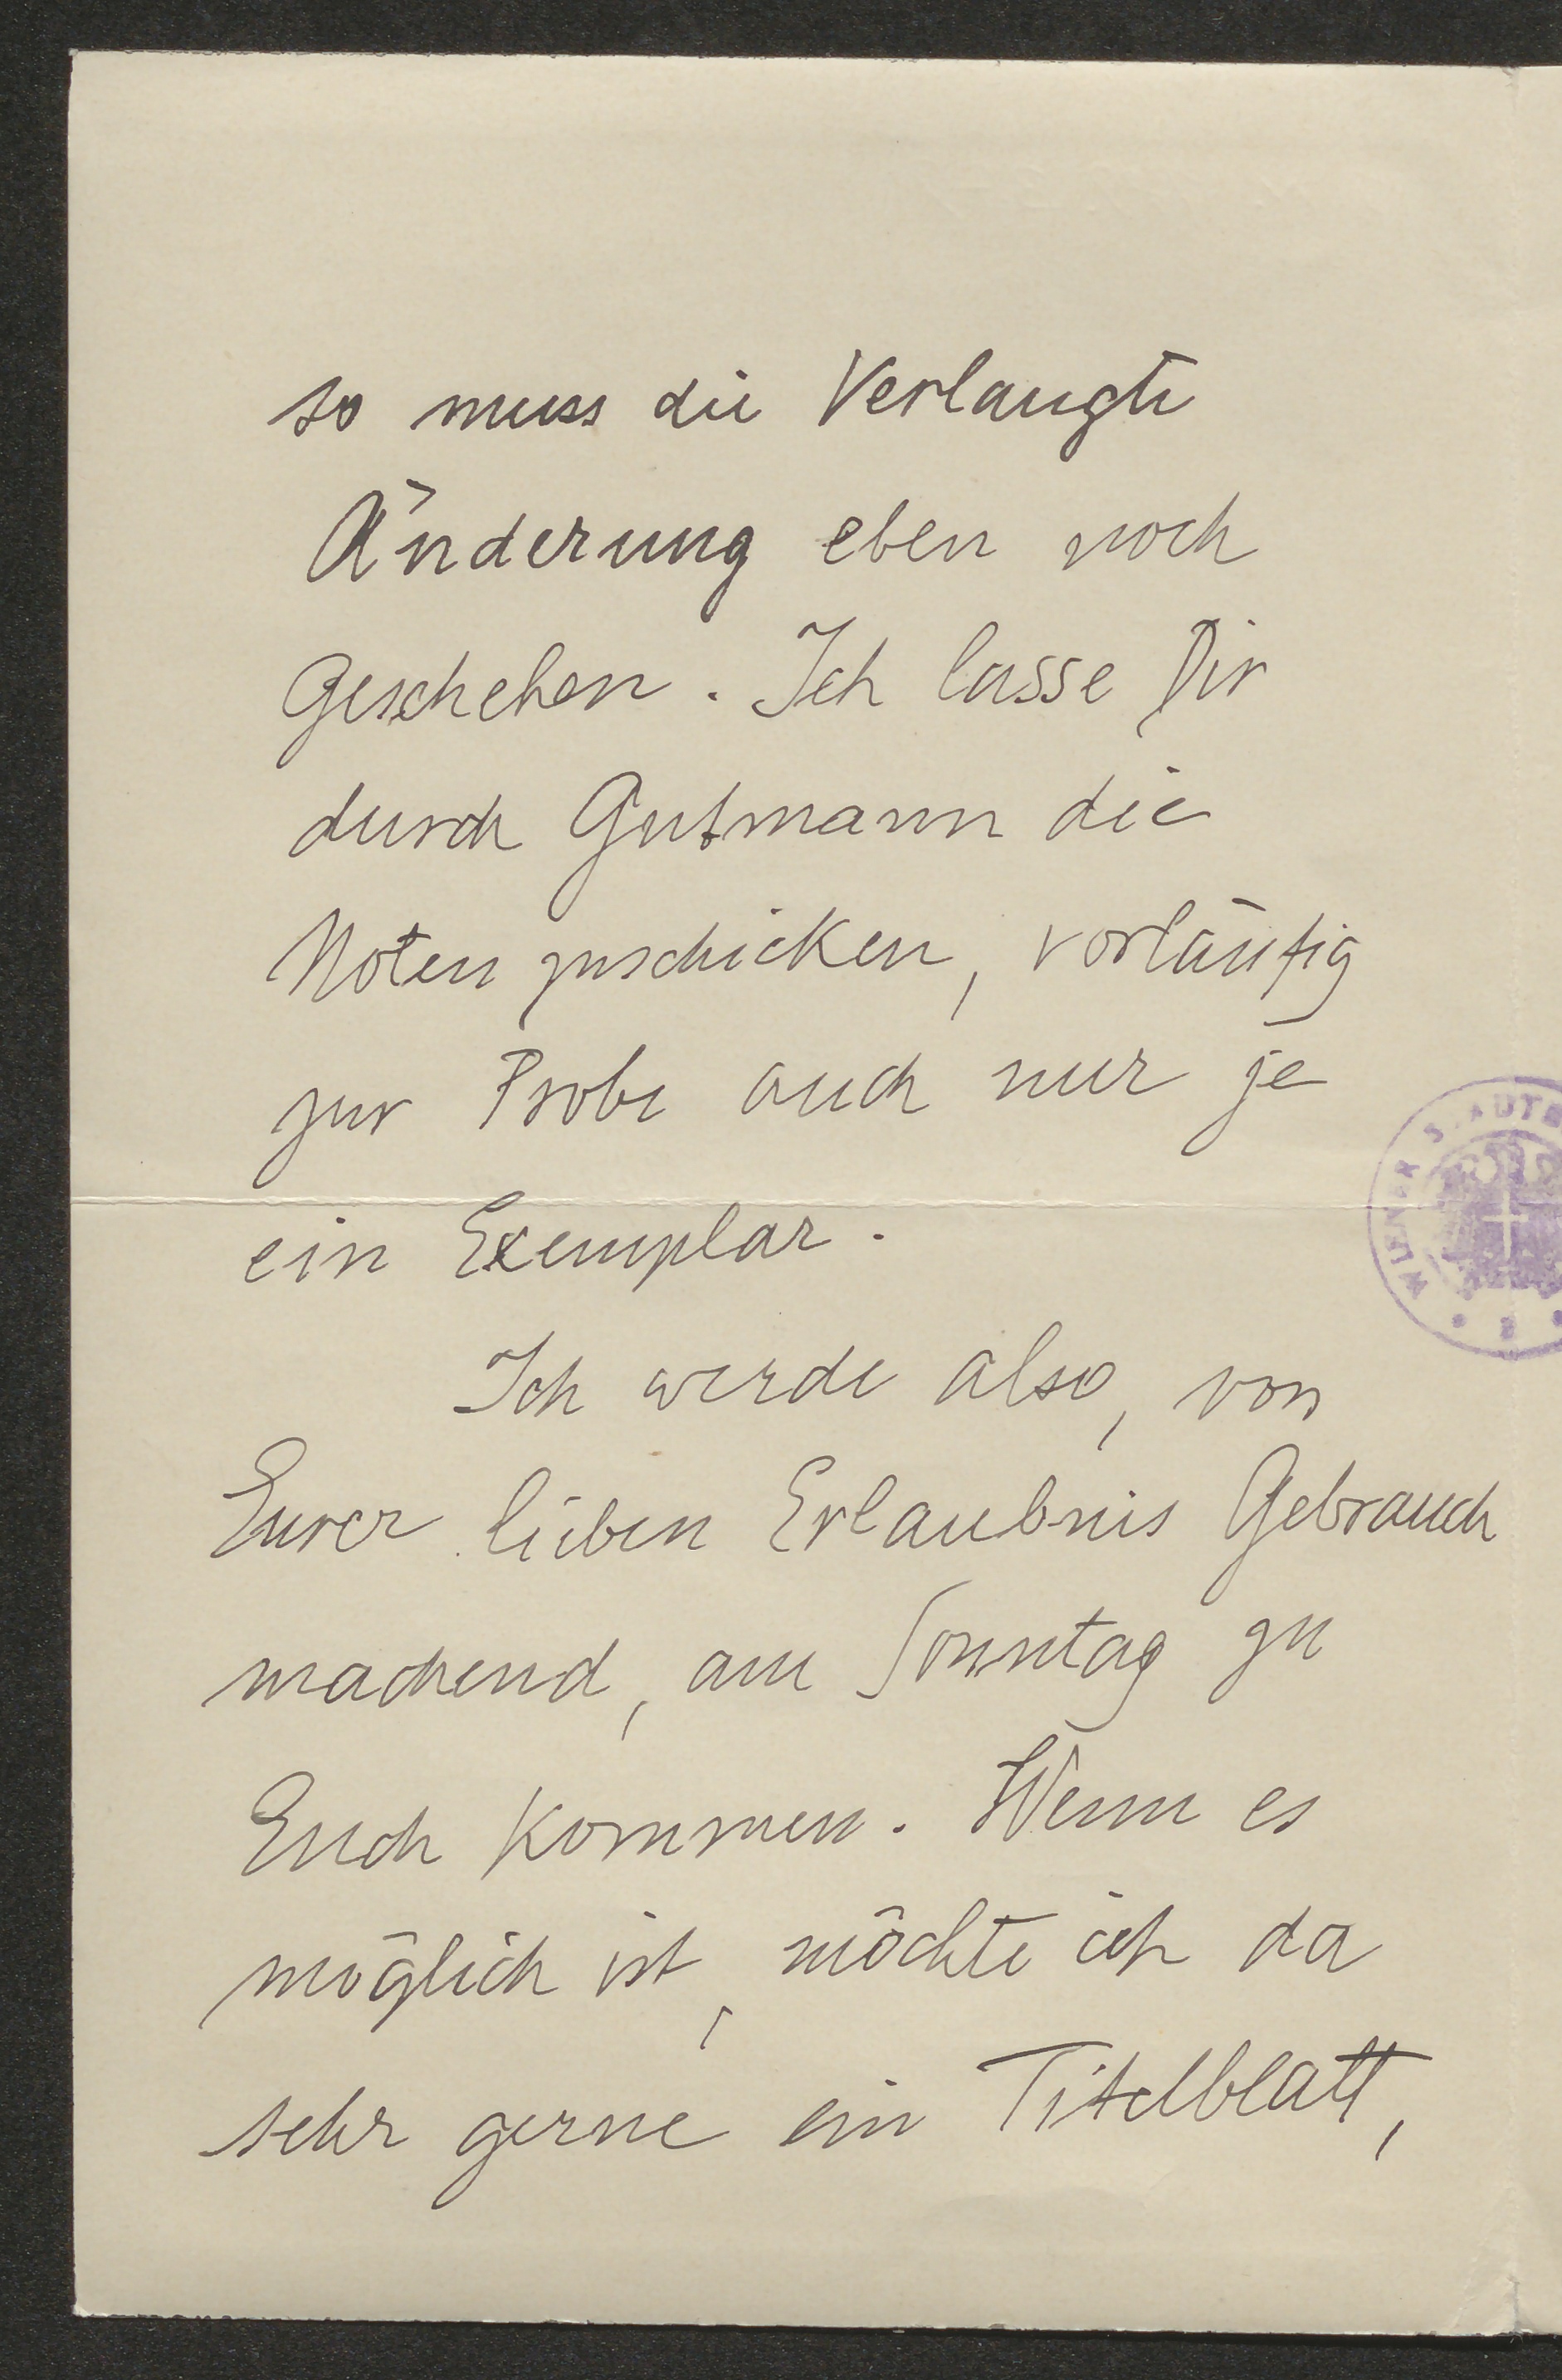 so muss die Verlangte
Änderung eben noch
Geschehen. Ich lasse Dir
durch Gutmann die
Noten zuschicken, vorläufig
zur Probe auch nur je
ein Exemplar.
Ich werde also, von
Eurer lieben Erlaubnis Gebrauch
machend, am Sonntag zu
Euch kommen. Wenn es
möglich ist, möchte ich da
sehr gerne ein Titelblatt,
WIENER